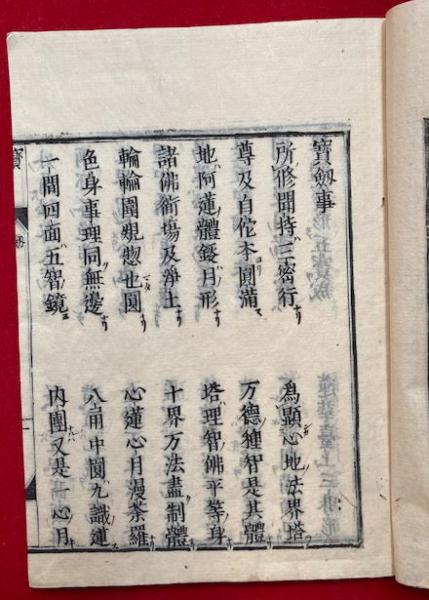 寶劔事
所修開持三密行　為顯心地法界塔
尊及自佗本圓滿　万德種智是其體
地阿蓮體鑁月形　塔理智佛平等身
諸佛術場及淨土　十界万法盡制體
輪輪圍規惣也圓　心蓮心月漫荼羅
色身事理同無邊　八角中圓九識蓮
一間四面五智鏡　內團又是一心月
寶